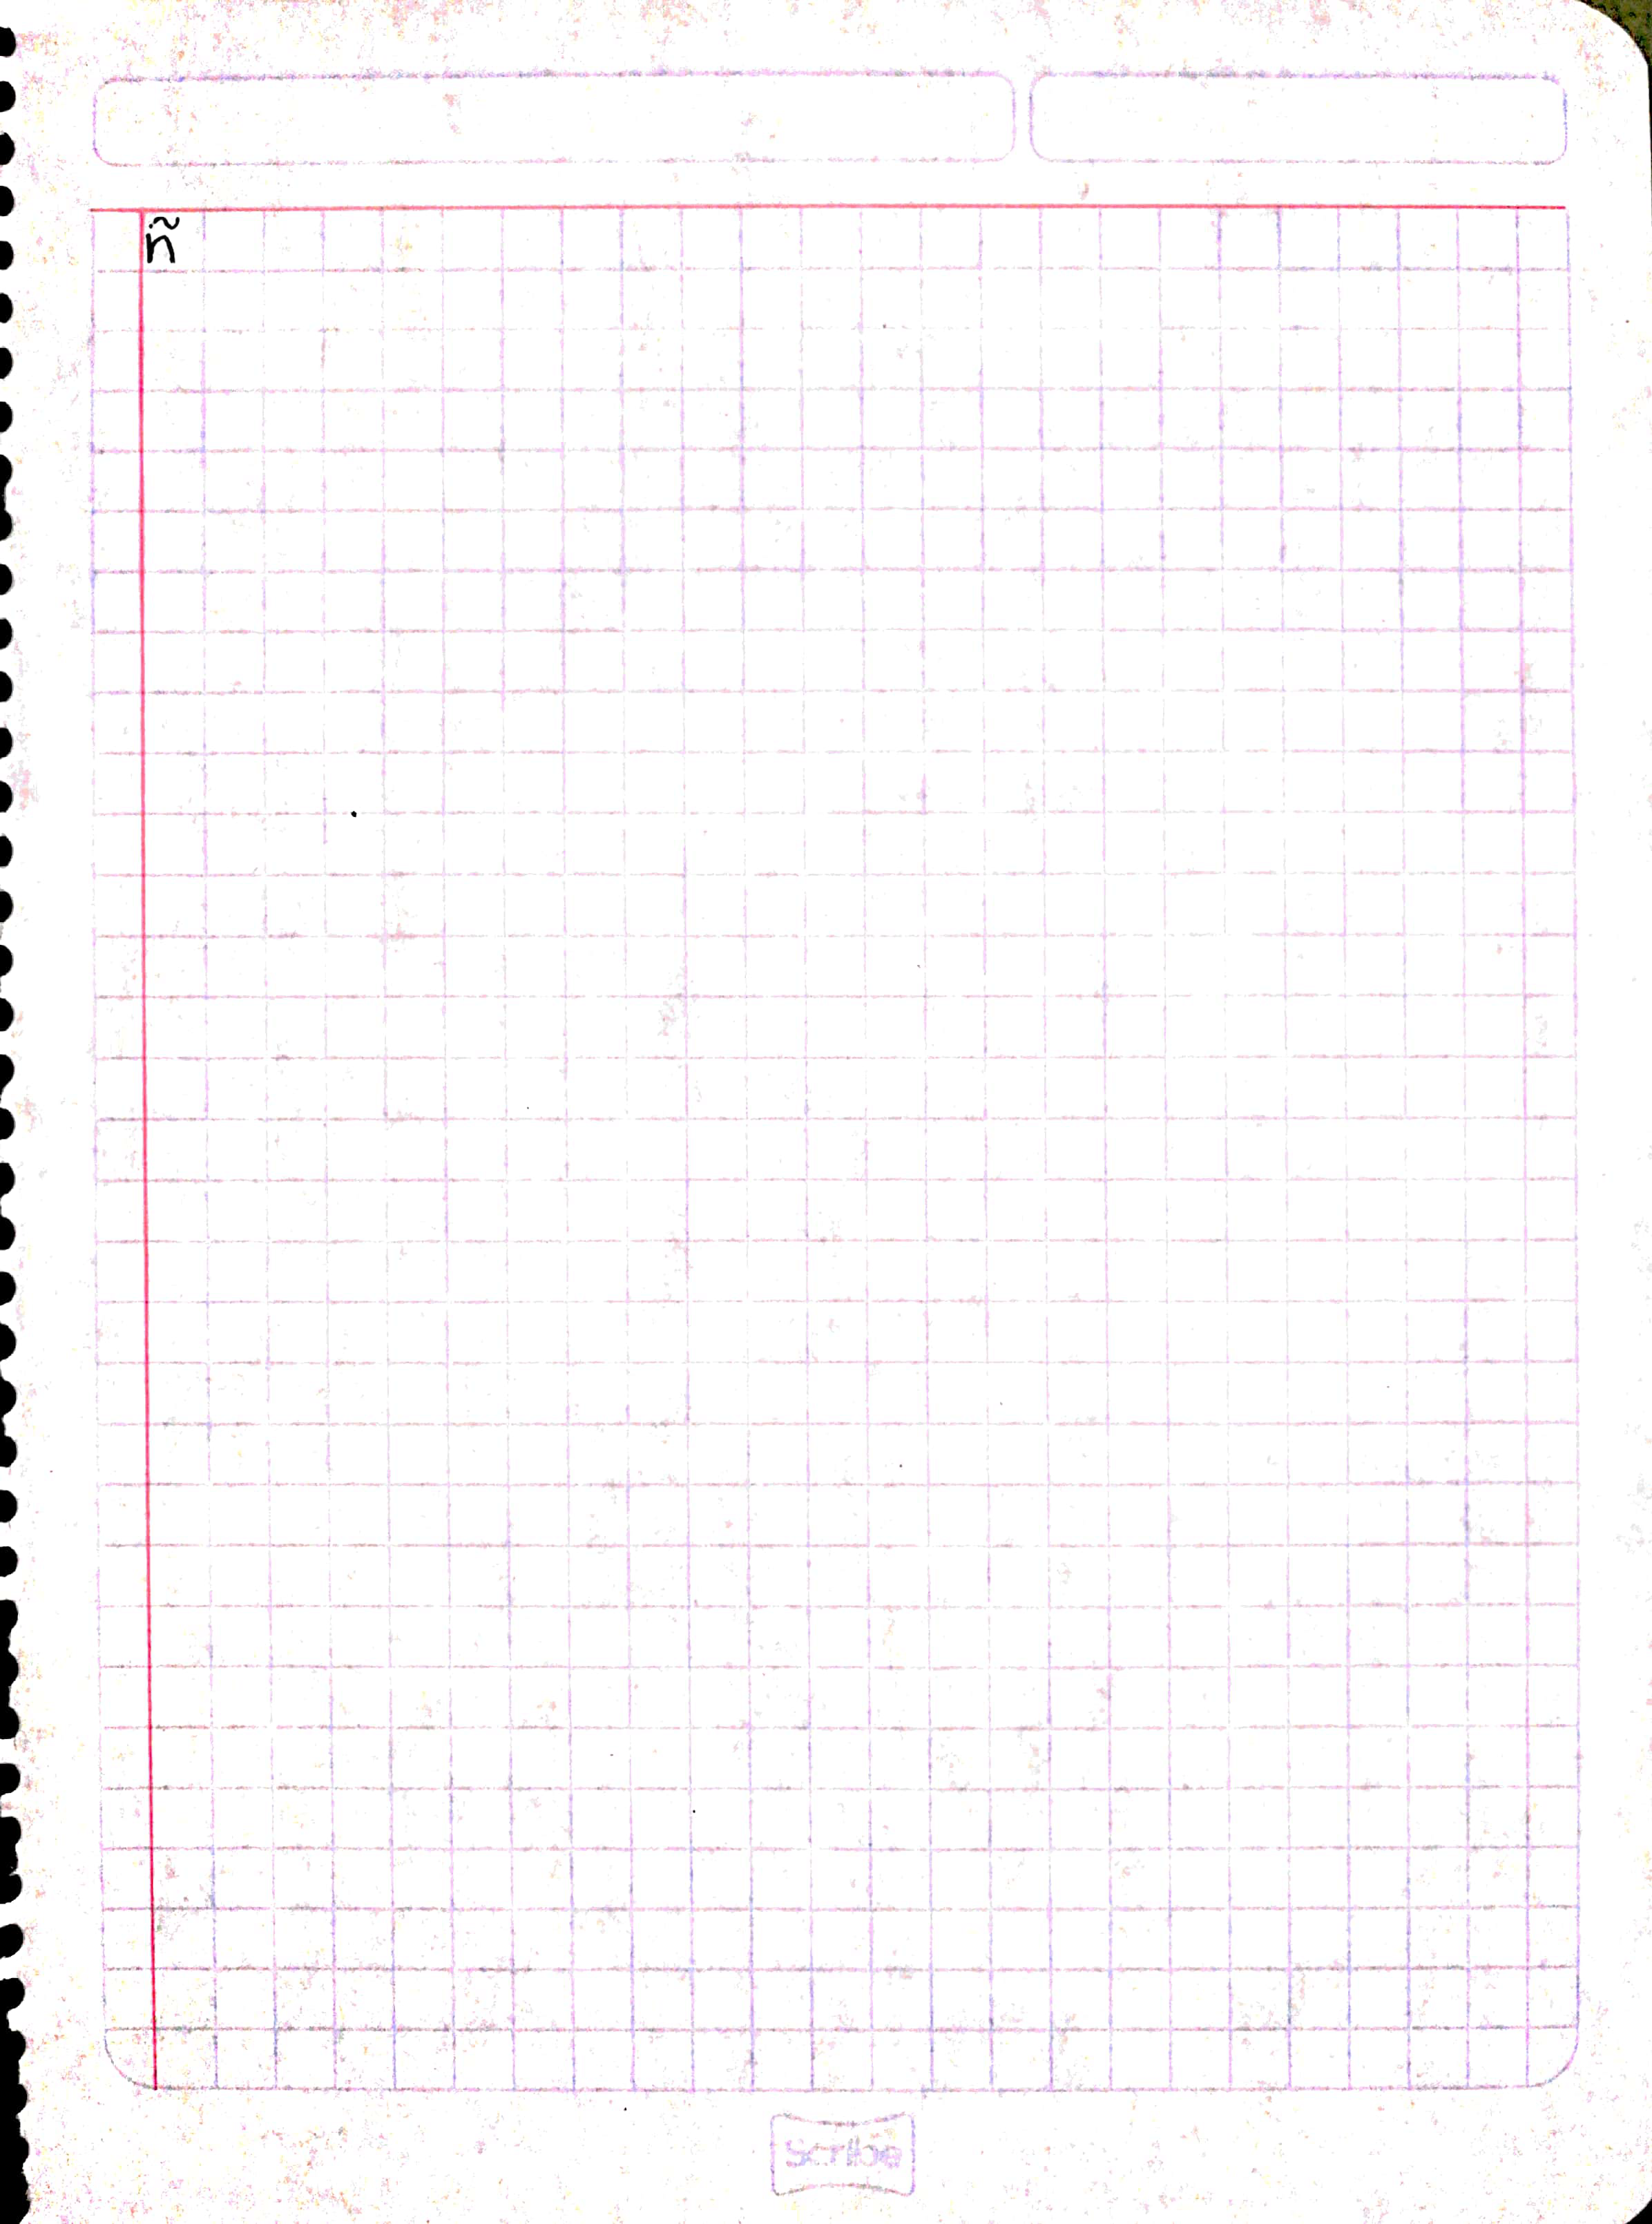 ñ
Scribe